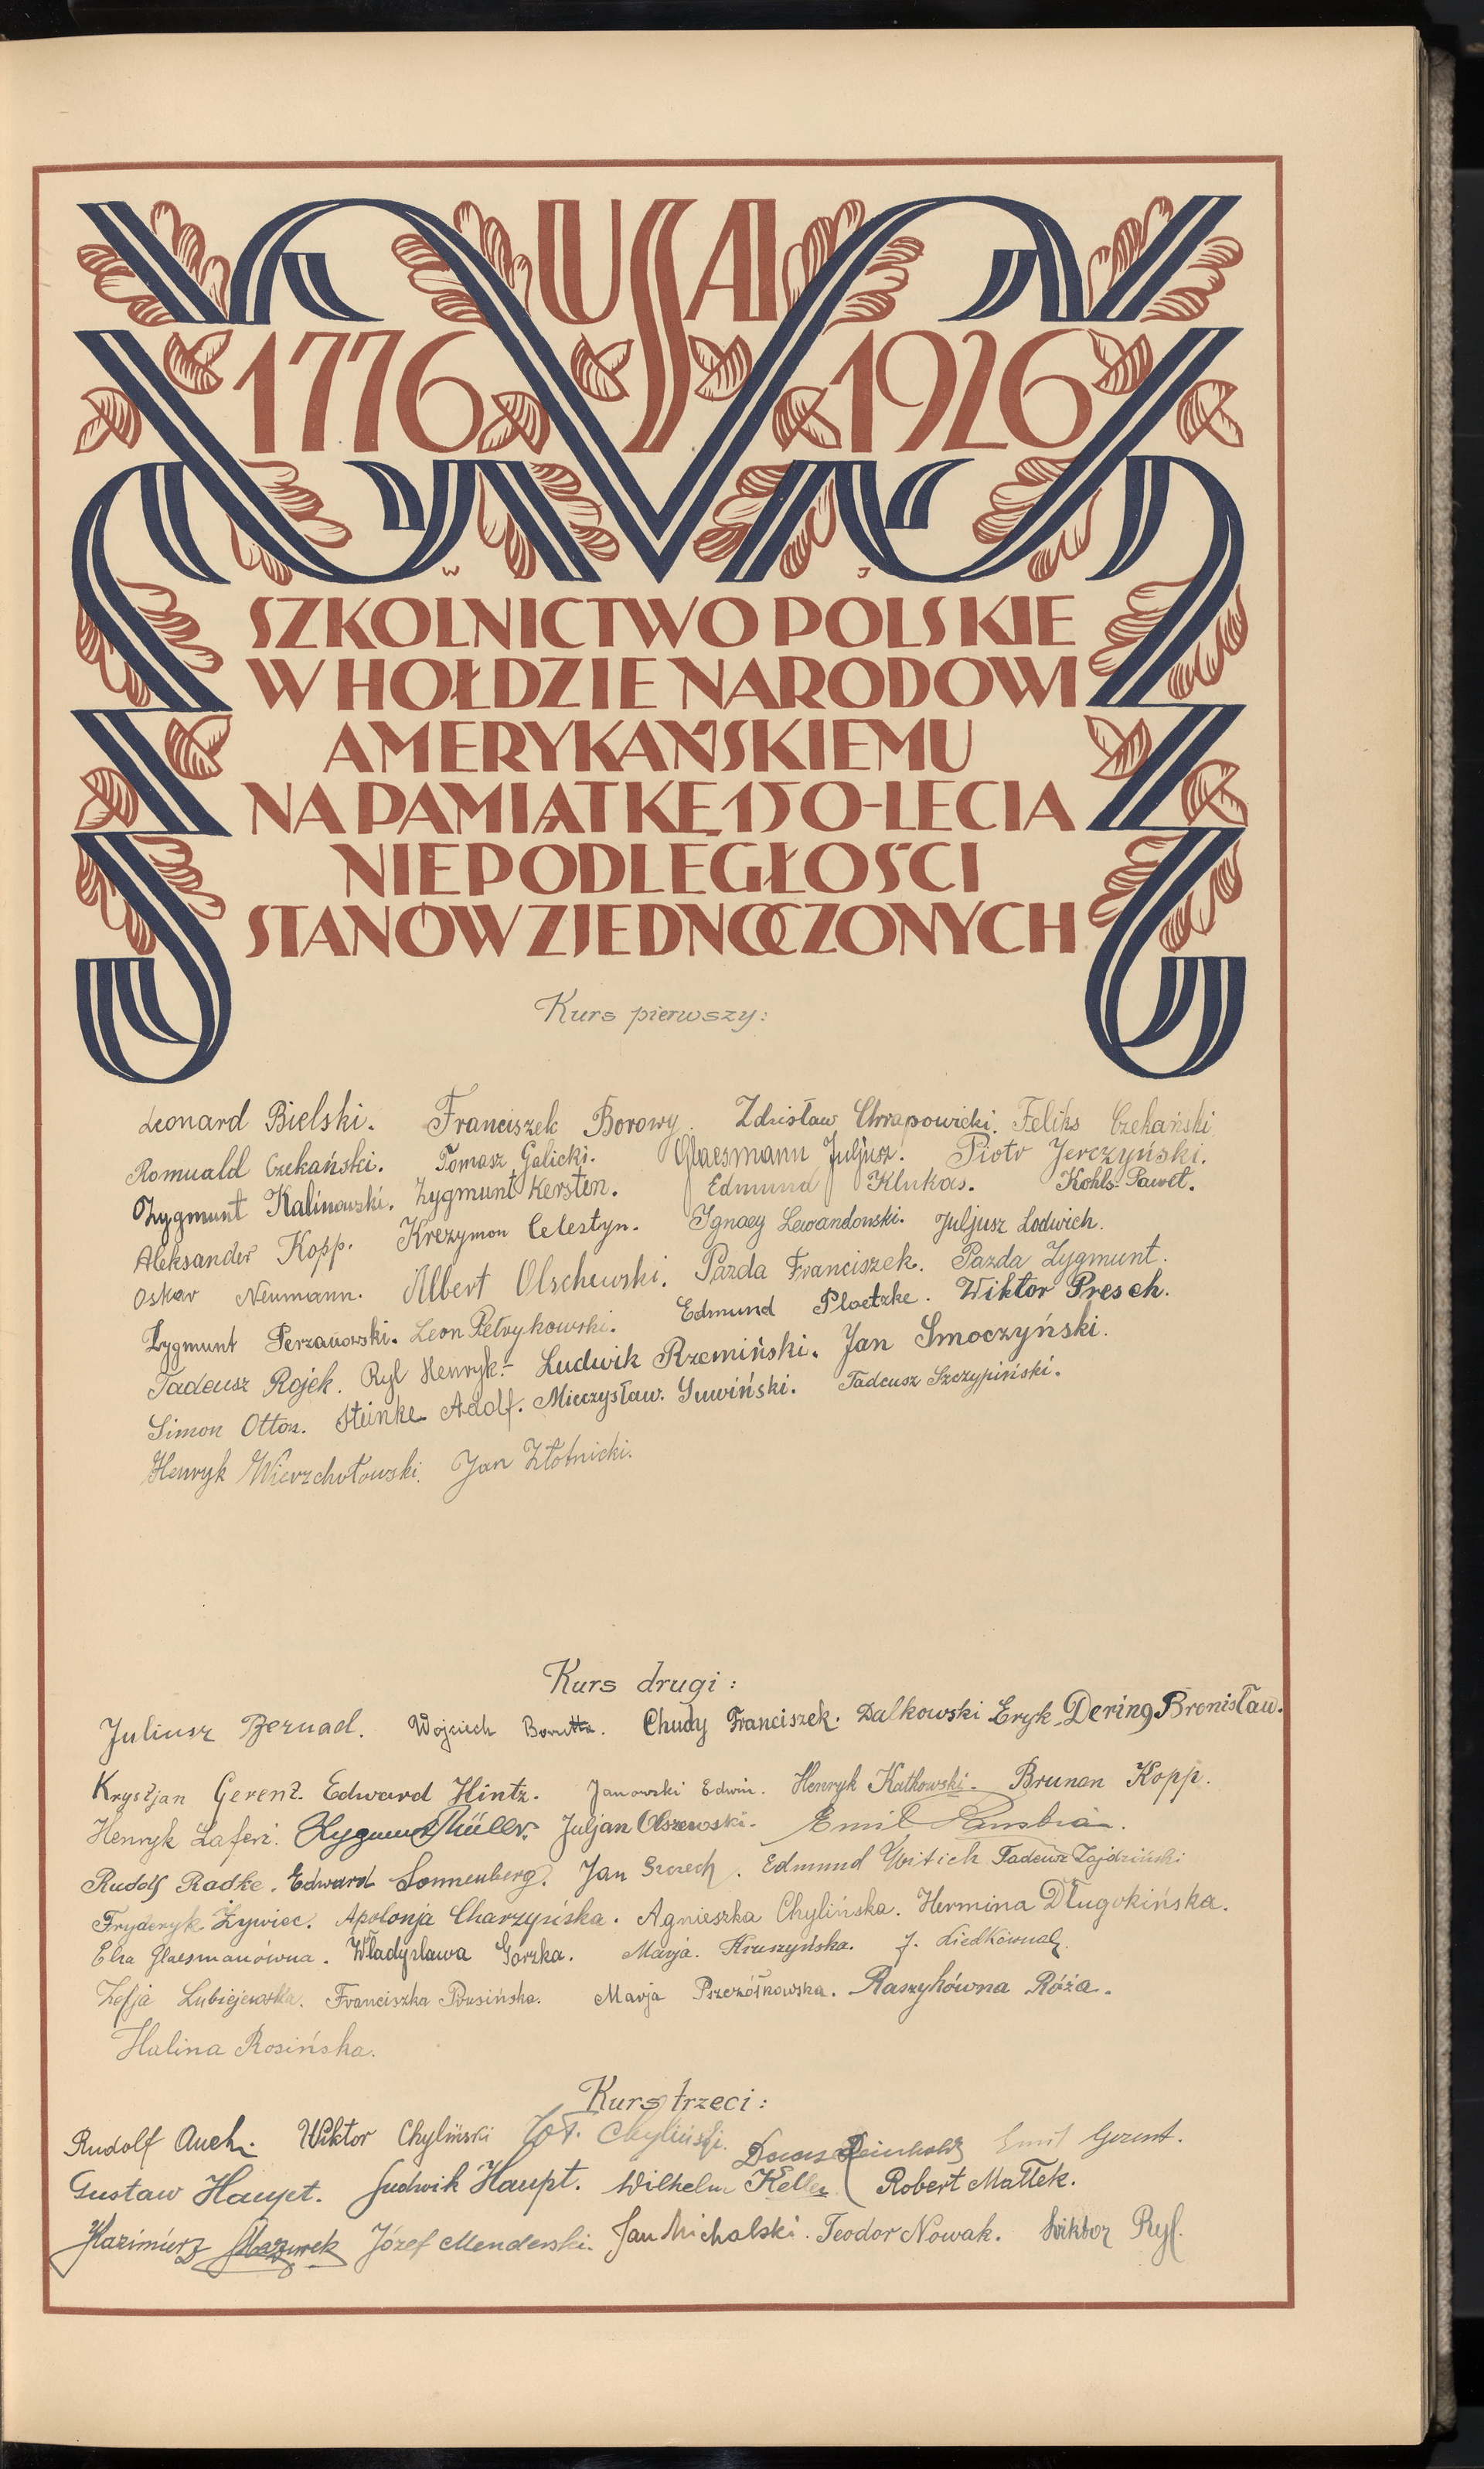 USA
1776 1926
W J
SZKOLNICTWO POLSKIE
W HOŁDZIE NARODOWI
AMERYKAŃSKIEMU
NA PAMIĄTKĘ 150-LECIA
NIEPODLEGŁOŚCI
STANÓW ZJEDNOCZONYCH
Kurs pierwszy:
Leonard Bielski. Franciszek Borowy. Zdzisław Chrapowicki. Feliks Czekański
Romuald Czekański. Tomasz Galicki. Glaesmann Juljusz. Piotr Jerczyński.
Zygmunt Kalinowski. Zygmunt Kersten. Edmund Klukas. Kohls Paweł.
Aleksander Kopp. Krezymon Celestyn. Ignacy Lewandowski. Juljusz Lodwich.
Oskar Neumann. Albert Olschewski. Pazda Franciszek. Pazda Zygmunt.
Zygmunt Perzanowski. Leon Petrykowski. Edmund Ploetzke. Wiktor Presch.
Tadeusz Rojek. Ryl Henryk. Ludwik Rzemiński. Jan Smoczyński.
Simon Otton. Steinke Adolf. Mieczysław Suwiński. Tadeusz Szczypiński.
Henryk Wierzchołowski. Jan Złotnicki.
Kurs drugi:
Juliusz Bernad. Wojciech Borutta. Chudy Franciszek. Dalkowski Eryk. Dering Bronisław.
Krystjan Gerenz. Edward Hintz. Janowski Edwin. Henryk Katkowski. Brunon Kopp.
Henryk Laferi. Zygmunt Müller. Juljan Olszewski. Emil
Rudolf Radke. Edward Sonnenberg. Jan Szczech. Edmund Tadeusz Zajdziński
Fryderyk Żywiec. Apolonja Charzyńska. Agnieszka Chylińska. Hermina Długokińska.
Elza Glaesmanówna. Władysława Górzka. Marja Kruszyńska. J. Liedkówna
Zofja Lubiejewska. Franciszka Prusińska. Marja Pszczółkowska. Raszykówna Róża.
Halina Rosińska.
Kurs trzeci:
Rudolf Auch. Wiktor Chyliński Chyliński. Reinhold Emil Gerent.
Gustaw Haupt. Ludwik Haupt. Wilhelm Keller Robert Małłek.
Kazimierz Mazurek Józef Menderski. Jan Michalski. Teodor Nowak. Wiktor Ryl.